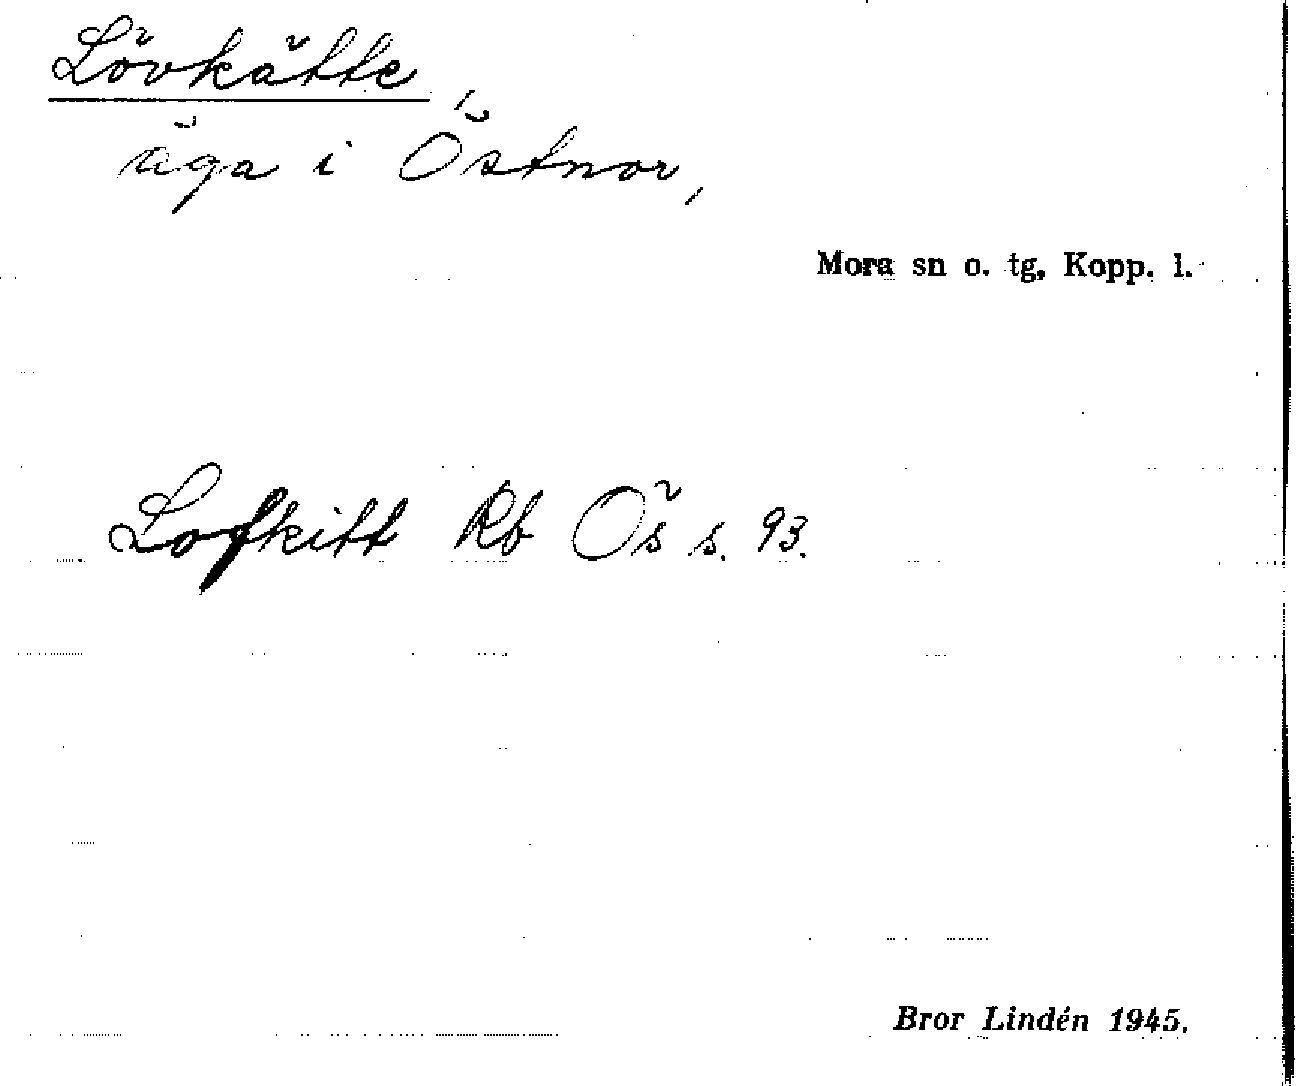 Lövkätte,
äga i Östnor,
Mora sn o. tg, Kopp. l.
Lofkitt Rb Ös s. 93.
Bror Lindén 1945.